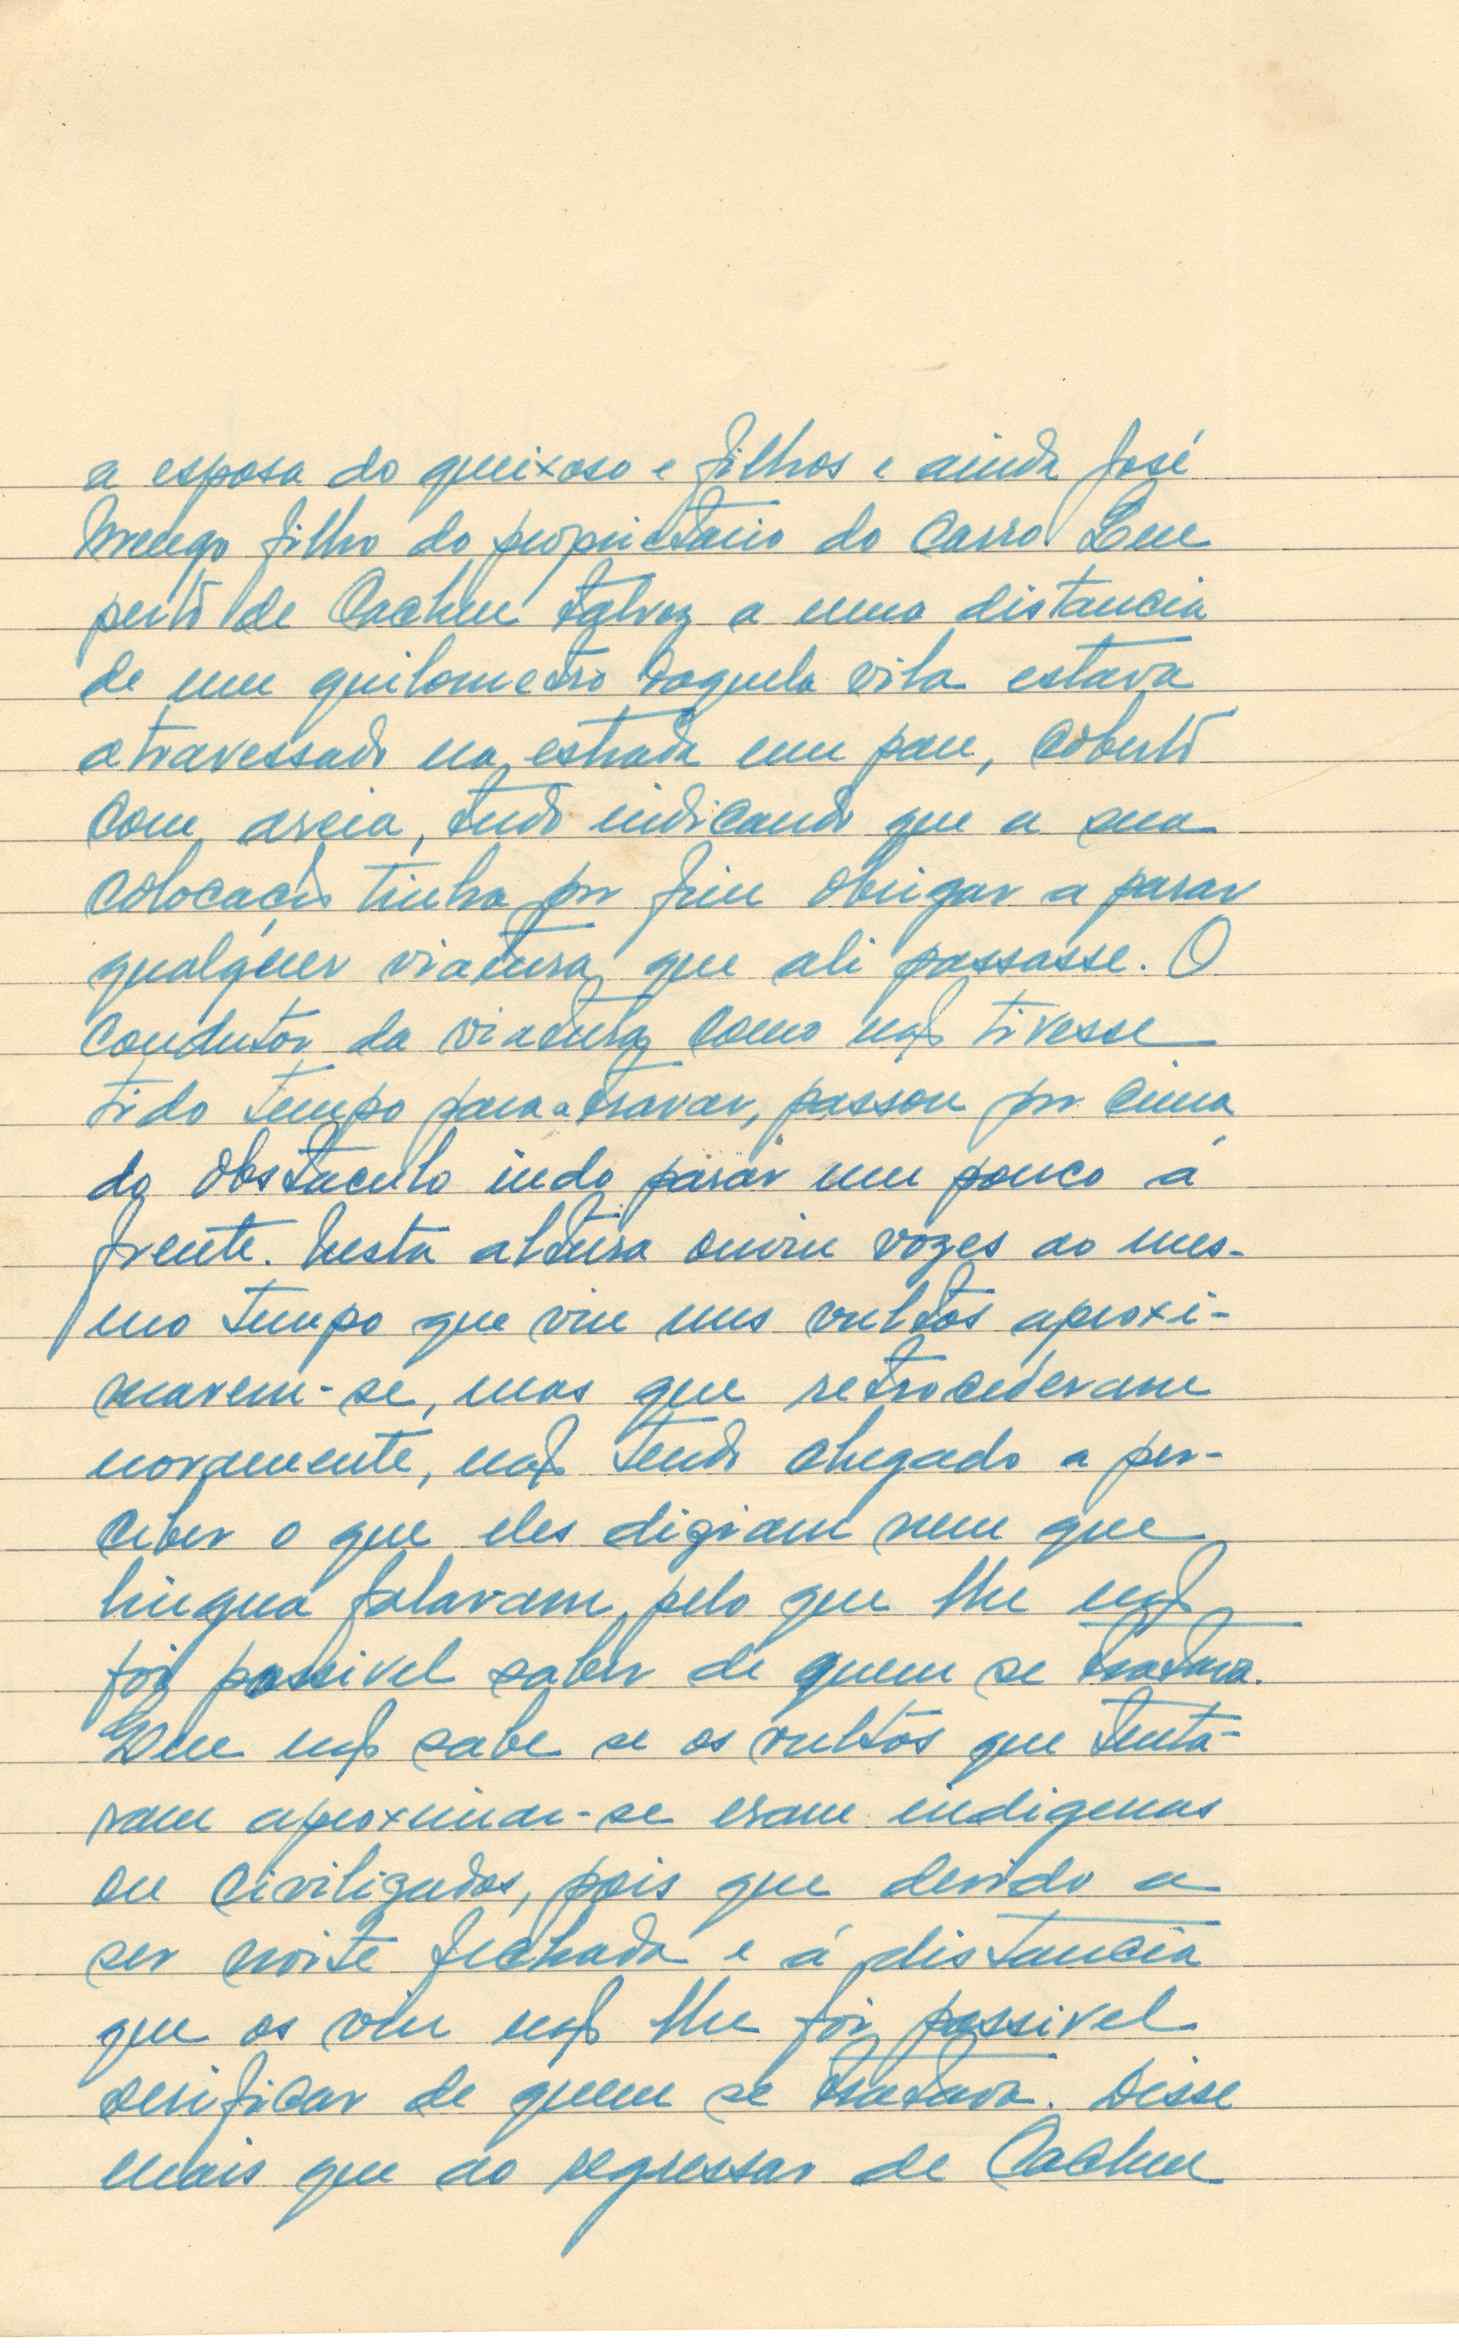 a esposa do queixoso e filhos e ainda José
filho do proprietario do carro. Que
perto de Cacheu talvez a uma distancia
de um quilometro daquela vila estava
atravessado na estrada um pau, coberto
com areia, tudo indicando que a sua
colocação tinha por fim obrigar a parar
qualquer viatura que ali passasse. O
condutor da viatura como não tivesse
tido tempo para a travar, passou por cima
do obstaculo indo parar um pouco á
frente. Nesta altura ouviu vozes ao mes-
mo tempo que viu uns vultos aproxi-
marem-se, mas que retrocederam
novamente, não tendo chegado a per-
ceber o que eles diziam nem que
lingua falavam, pelo que lhe não
foi possivel saber de quem se tratava.
Que não sabe se os vultos que tenta-
ram aproximar-se eram indigenas
ou civilizados, pois que devido a
ser noite fechada e á distancia
que os viu não lhe foi possivel
verificar de quem se tratava. Disse
mais que ao regressar de Cacheu